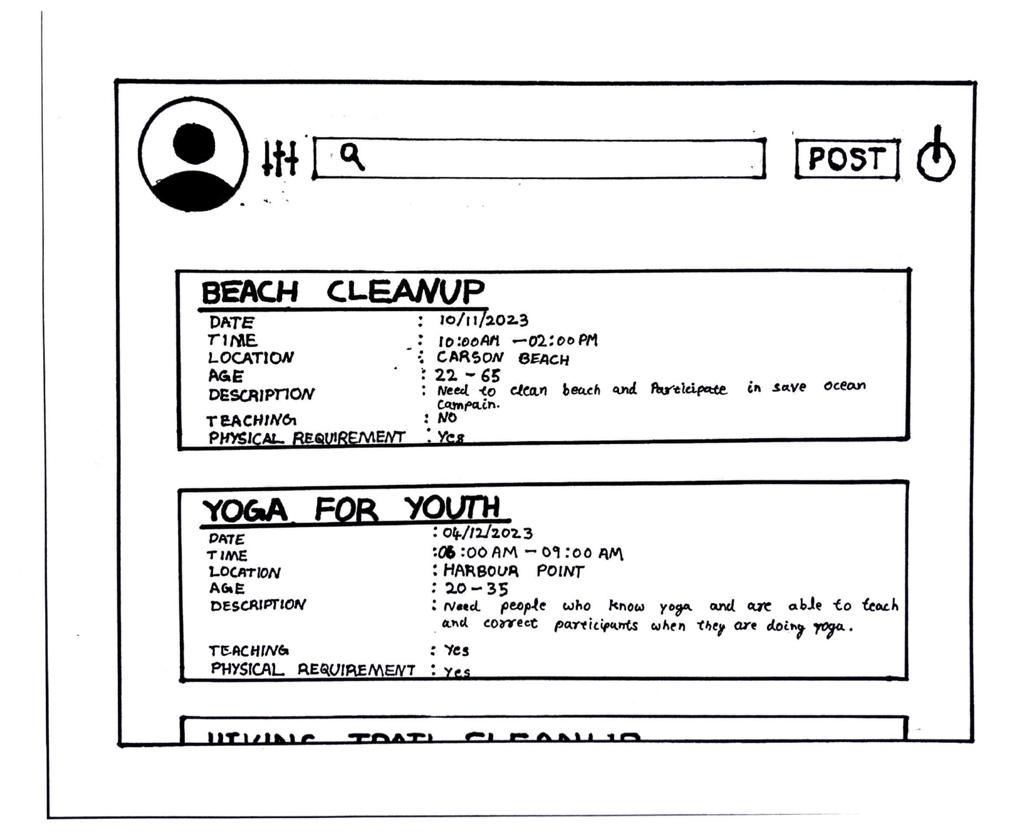 POST
BEACH CLEANUP
DATE : 10/11/2023
TIME : 10:00AM - 02:00 PM
LOCATION : CARSON BEACH
AGE : 22 - 65
DESCRIPTION : Need to clean beach and Participate in save ocean
Campain.
TEACHING : NO
PHYSICAL REQUIREMENT : Yes
YOGA FOR YOUTH
DATE : 04/12/2023
TIME : 06:00 AM - 09:00 AM
LOCATION : HARBOUR POINT
AGE : 20 - 35
DESCRIPTION : Need people who know yoga and are able to teach
and correct participants when they are doing yoga.
TEACHING : Yes
PHYSICAL REQUIREMENT : Yes
HIKING TRAIL CLEANUP